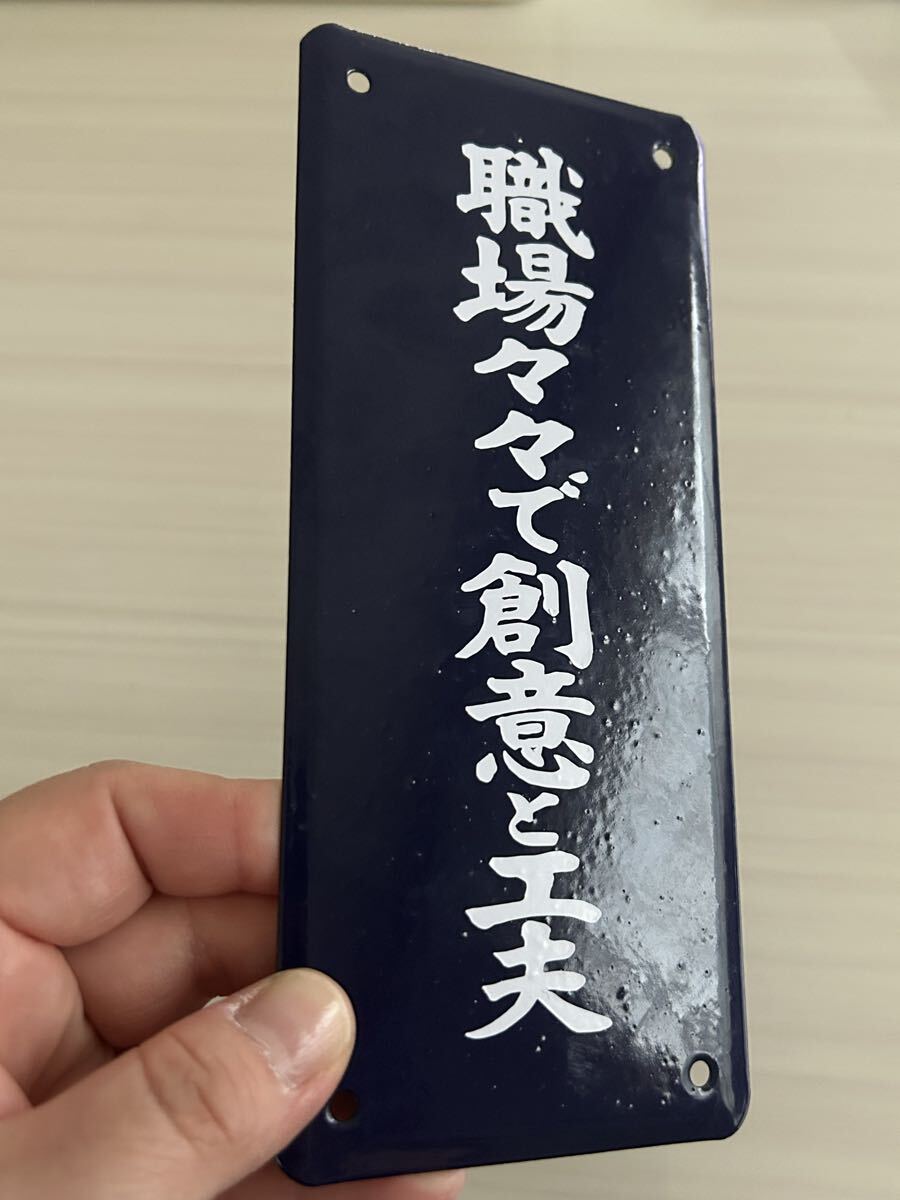 職場々々で創意と工夫